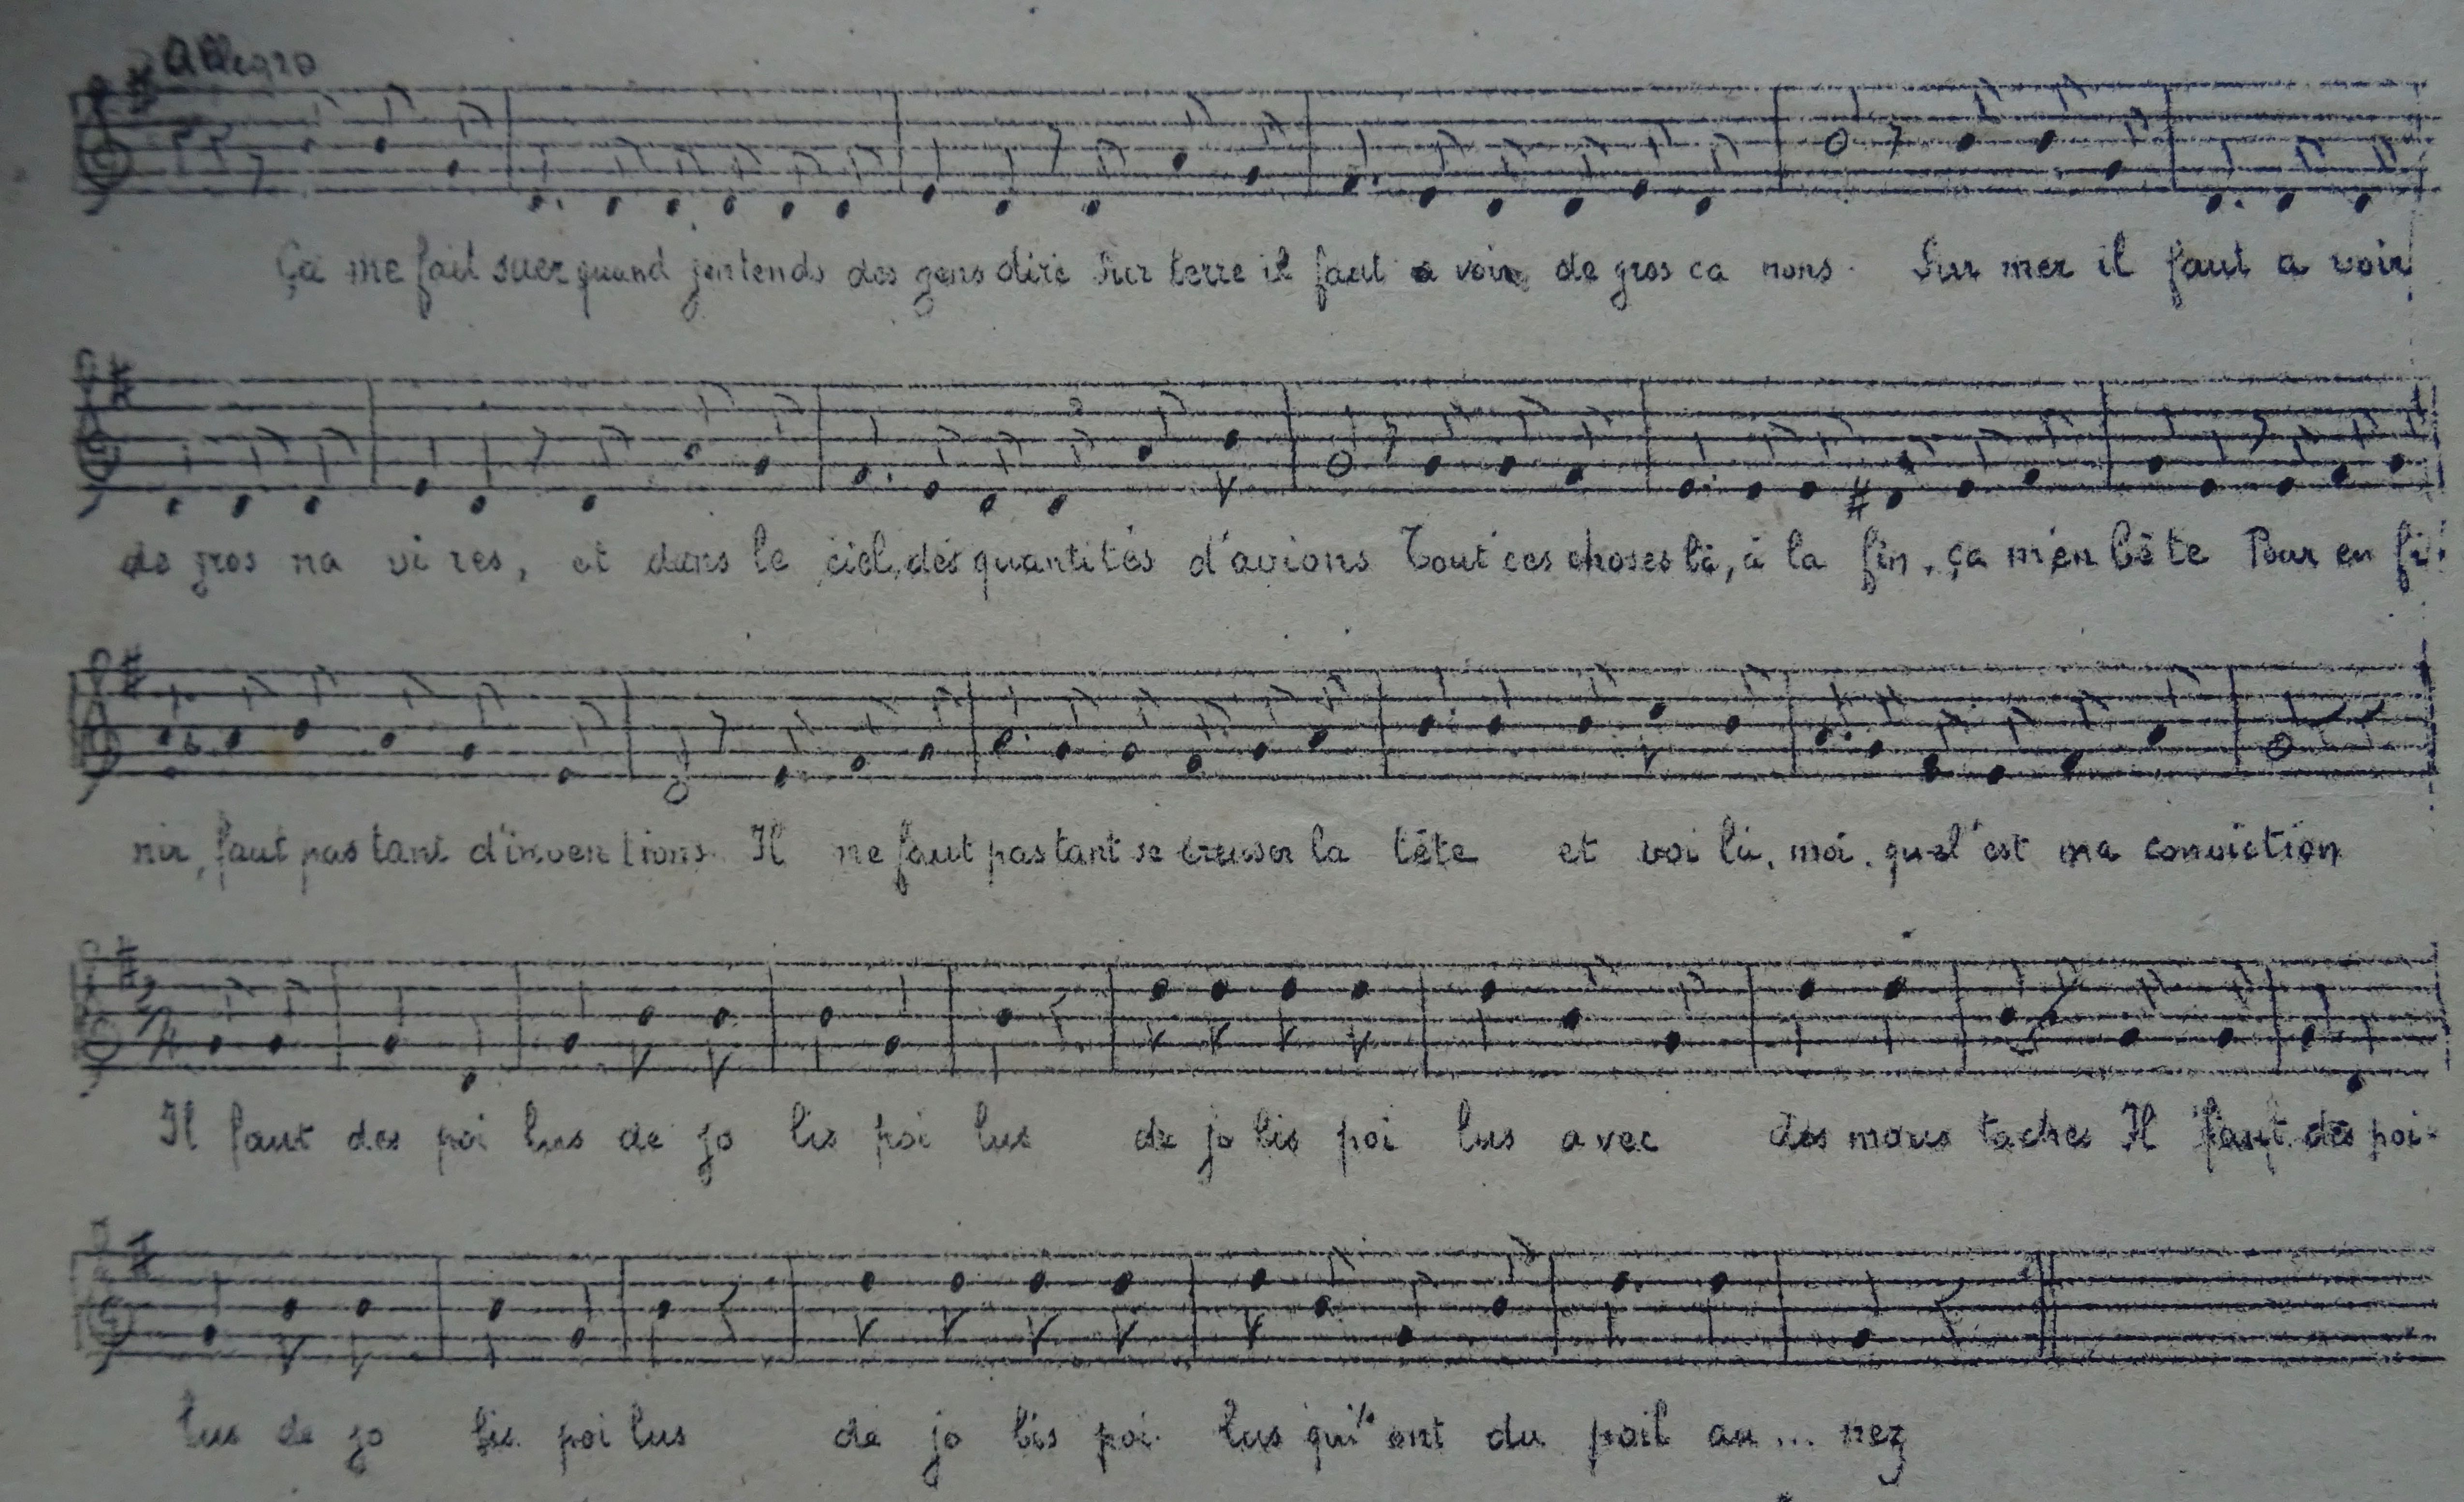 Allegro
Ça me fait suer quand j'entends des gens dire Sur terre il faut a voir de gros ca nons. Sur mer il faut a voir
de gros na vi res, et dans le ciel, des quantités d'avions Tout'ces choses là, à la fin, ça m'en bê te Pour en fi-
nir, faut pas tant d'inven tions. Il ne faut pas tant se creuser la tête et voi là, moi, quel'est ma conviction
Il faut des poi lus de jo lis poi lus de jo lis poi lus avec des mous taches Il faut des poi-
lus de jo lis poi lus de jo lis poi. lus qui ont du poil au ... nez